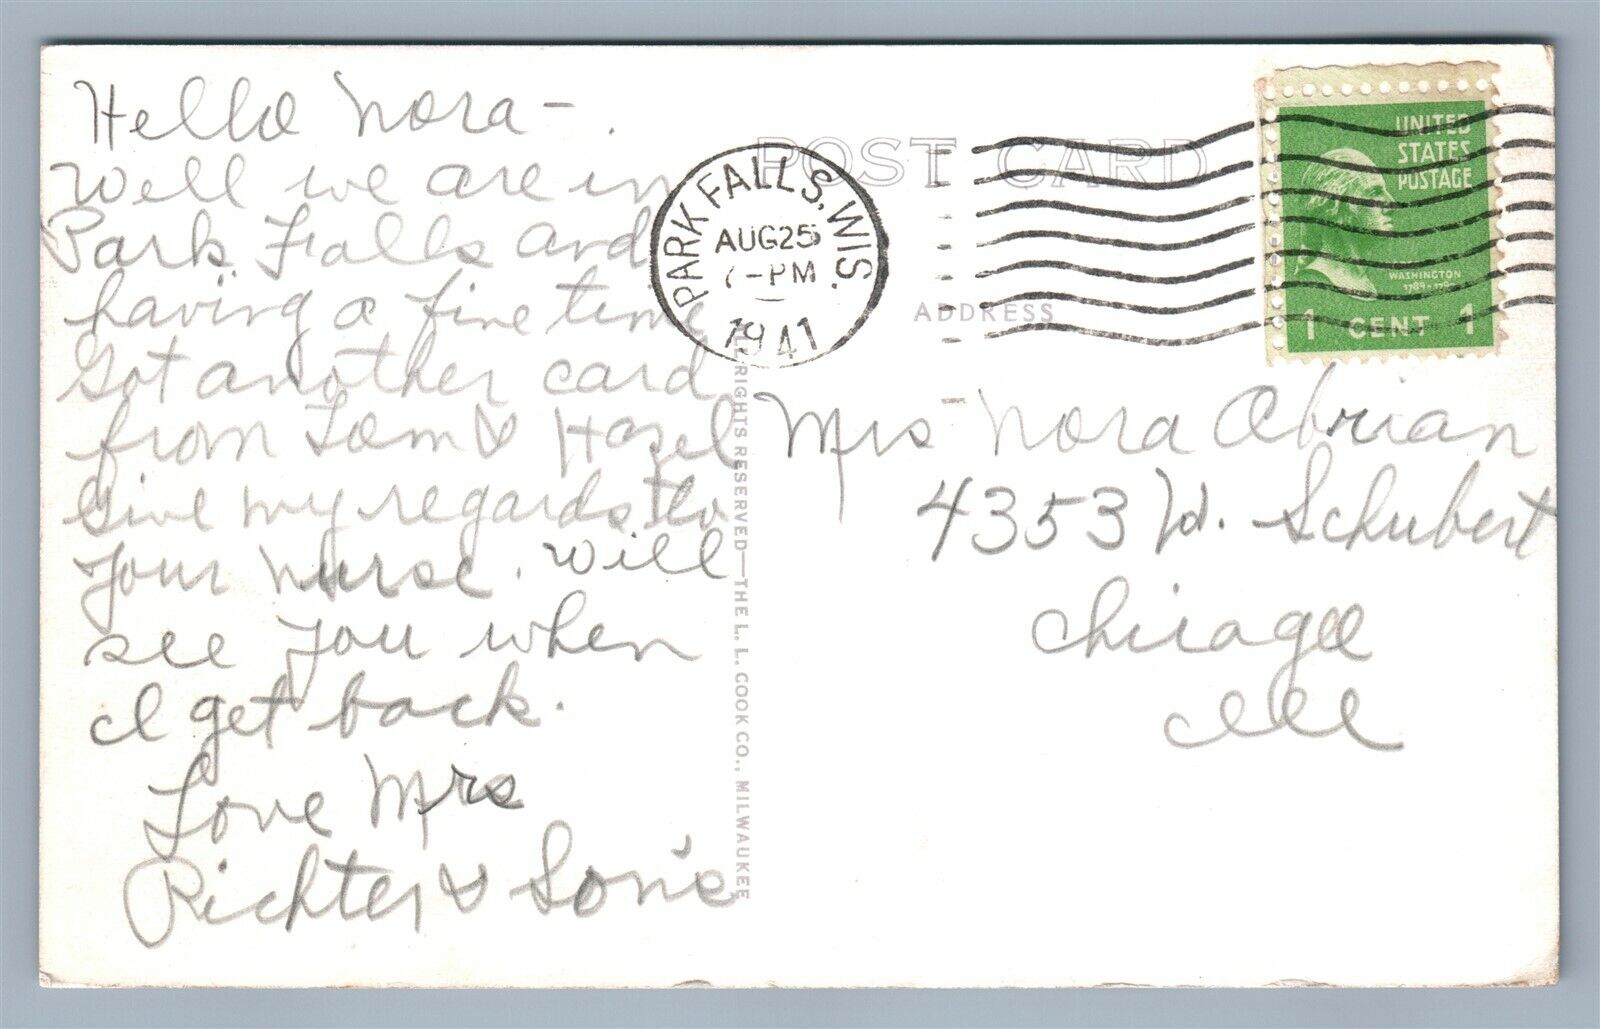 Hello Nora -.
Well we are in
Park Falls and
having a fine time
Got another card
from Tom & Hazel
Give my regards to
your nurse. Will
see you when
I get back.
Love Mrs
Richter & Son's
POST CARD
PARK FALLS, WIS.
AUG 25
7-PM
1941
UNITED
STATES
POSTAGE
WASHINGTON
1 CENT 1
ADDRESS
Mrs Nora Abrian
4353 W. Schubert
Chicago
Ill
ALL RIGHTS RESERVED—THE L. L. COOK CO., MILWAUKEE